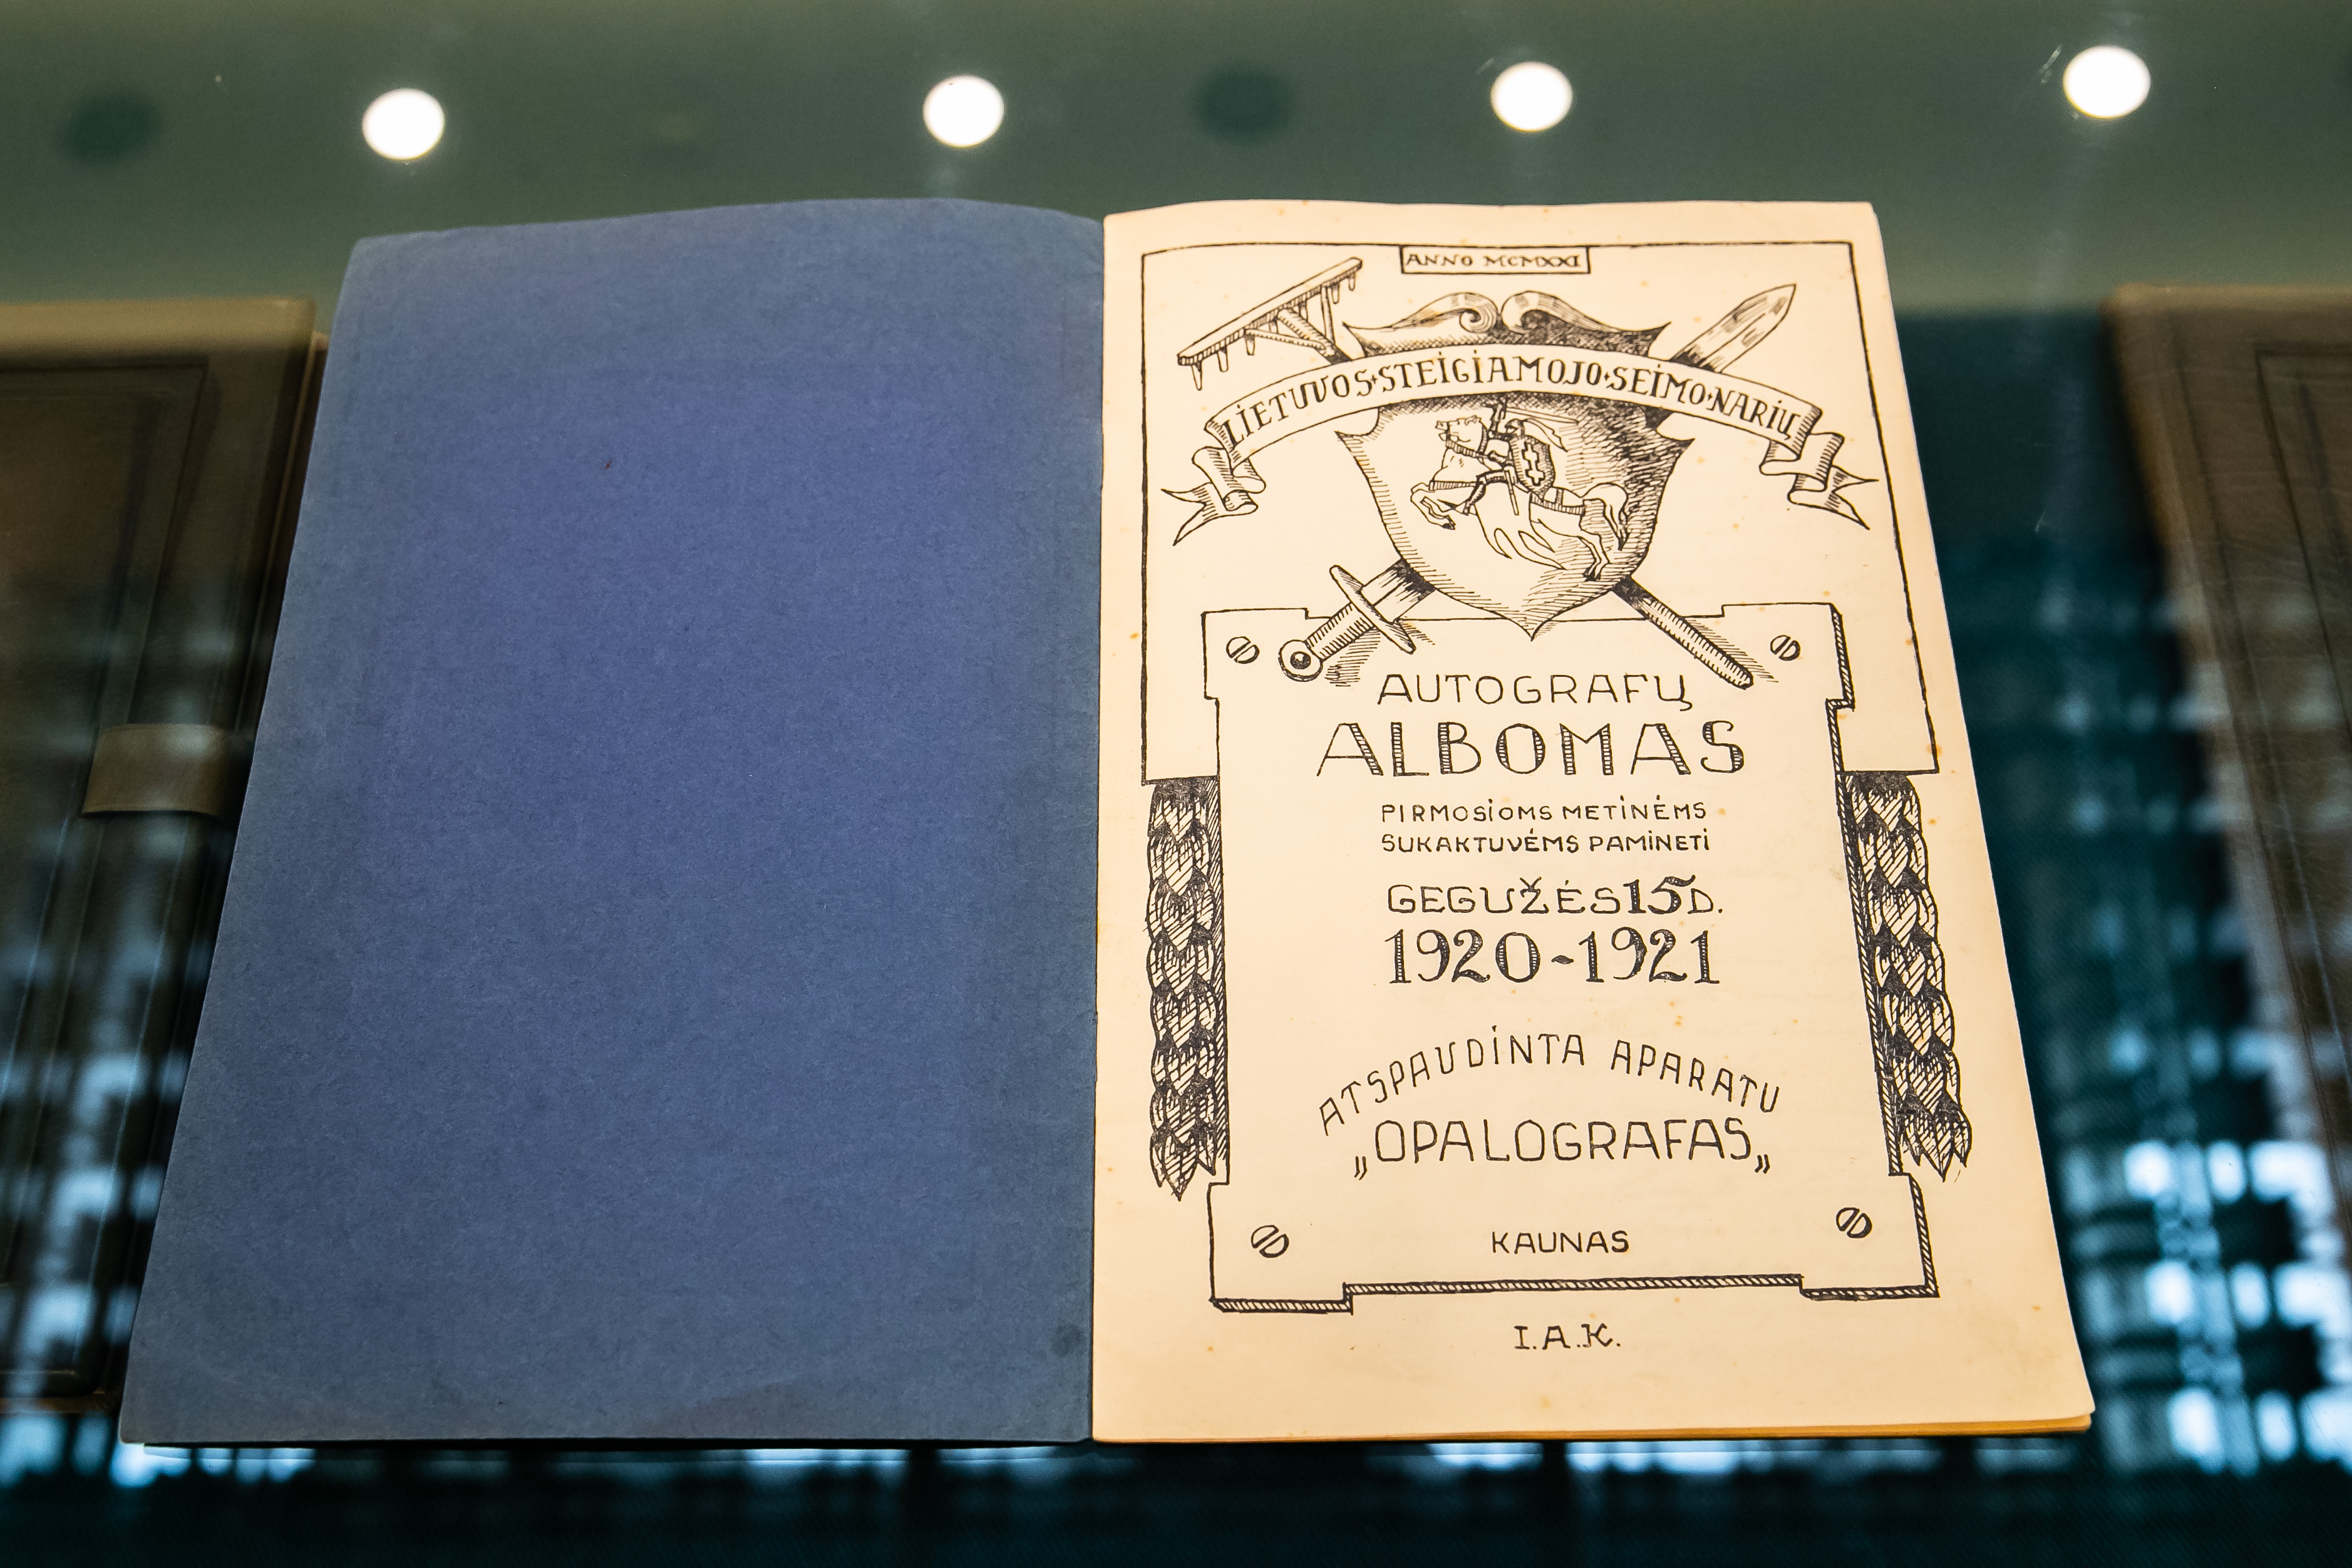 ANNO MCMXXI
LIETUVOS STEIGIAMOJO SEIMO NARIŲ
AUTOGRAFŲ
ALBOMAS
PIRMOSIOMS METINĖMS
SUKAKTUVĖMS PAMINETI
GEGUŽĖS 15 D.
1920-1921
ATSPAUDINTA APARATU
„OPALOGRAFAS„
KAUNAS
I.A.K.